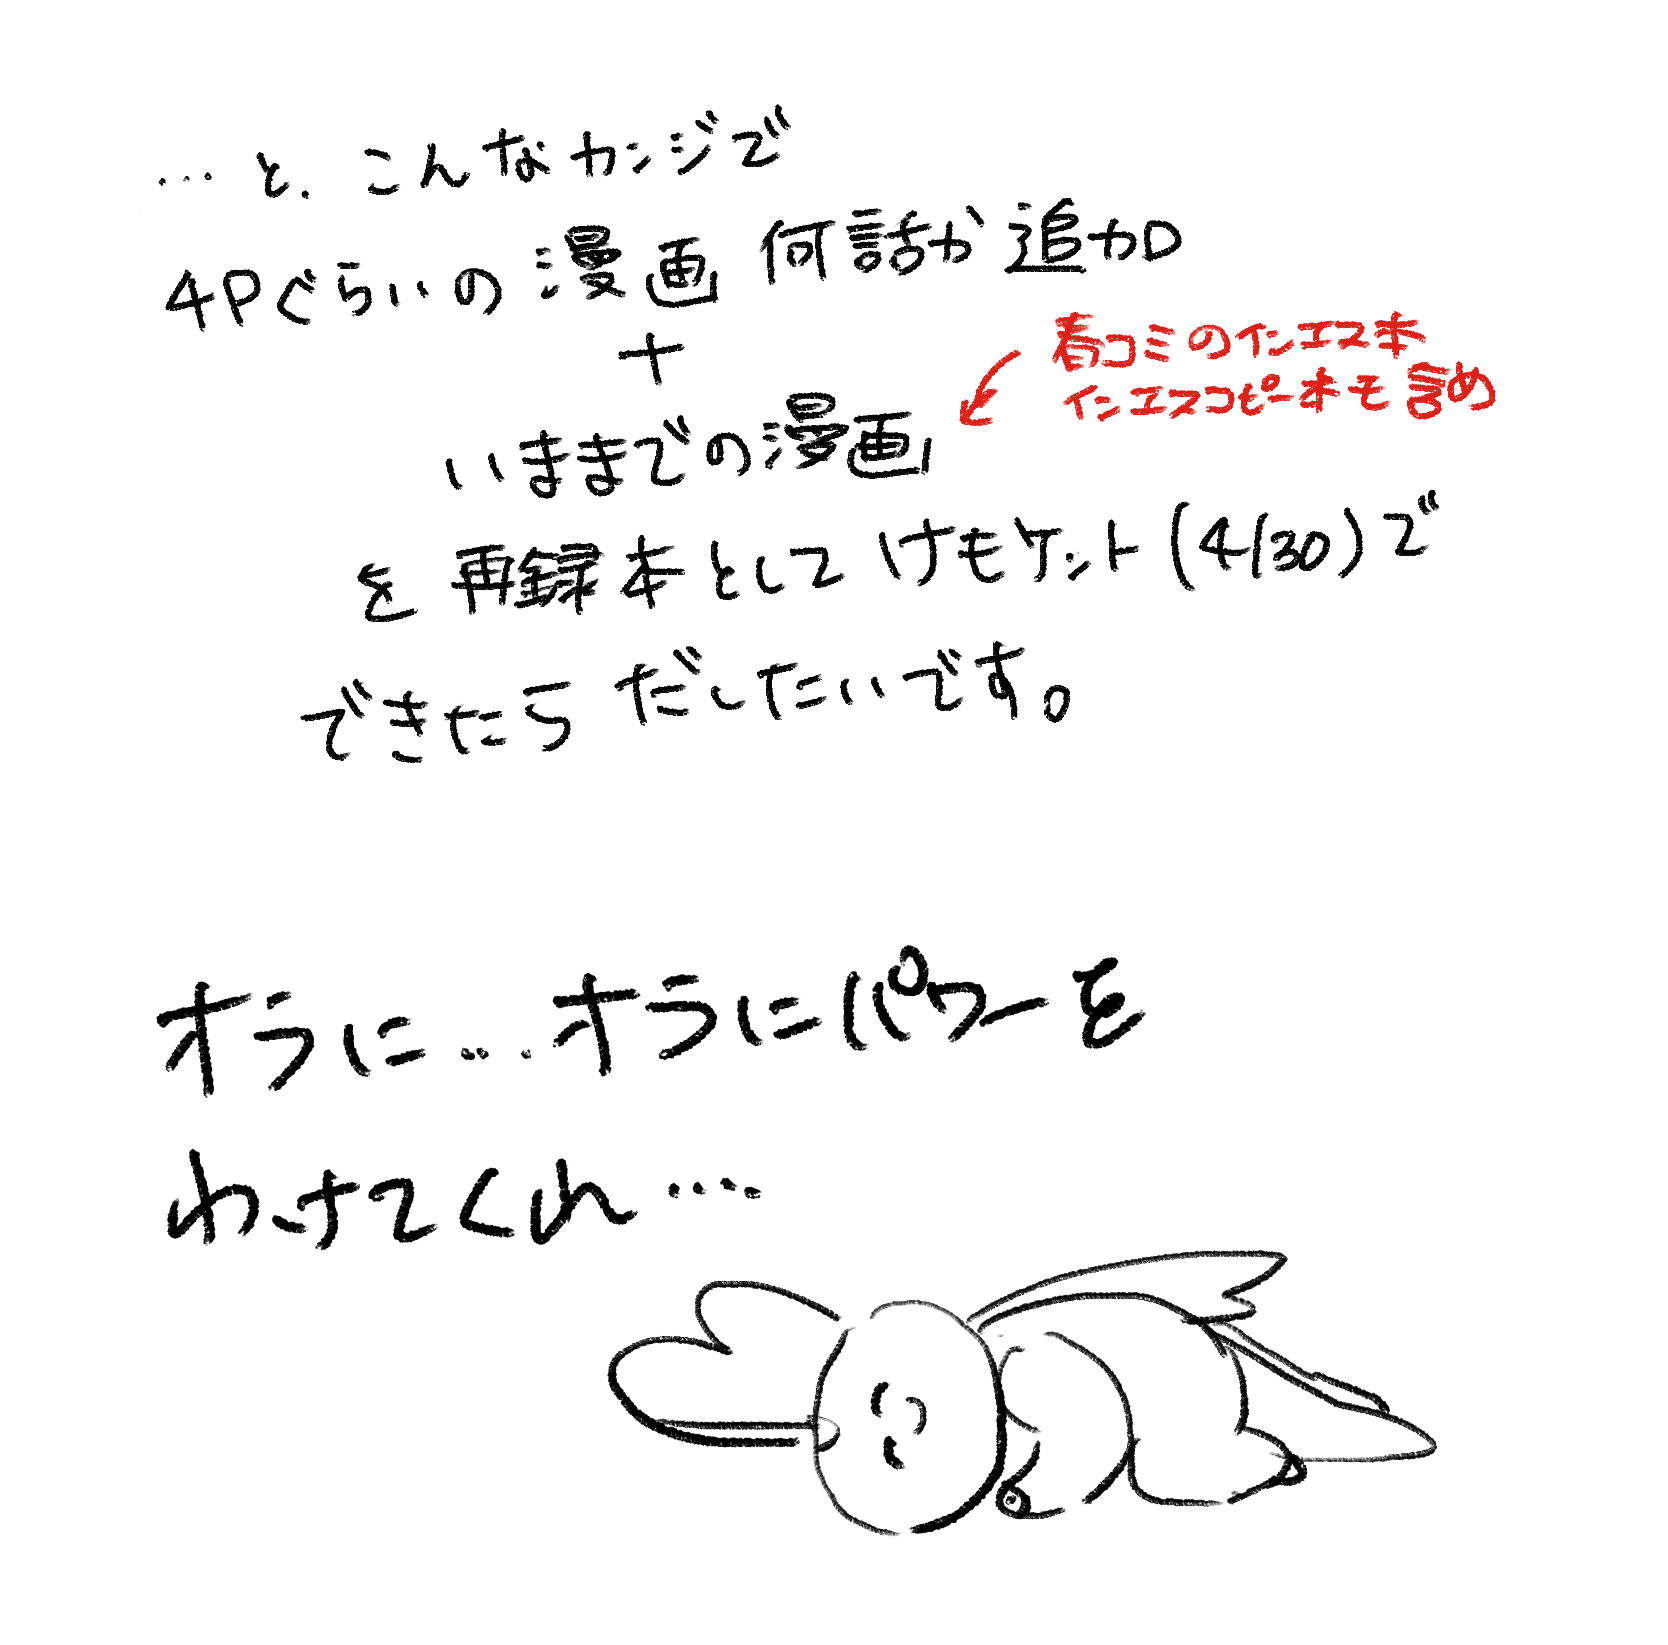 …と、こんなカンジで
4Pぐらいの漫画 何話か追加
+
春コミのインエス本
インエスコピー本も含め
いままでの漫画
を再録本として けもケット(4/30)で
できたら だしたいです。
オラに…オラにパワーを
わけてくれ….